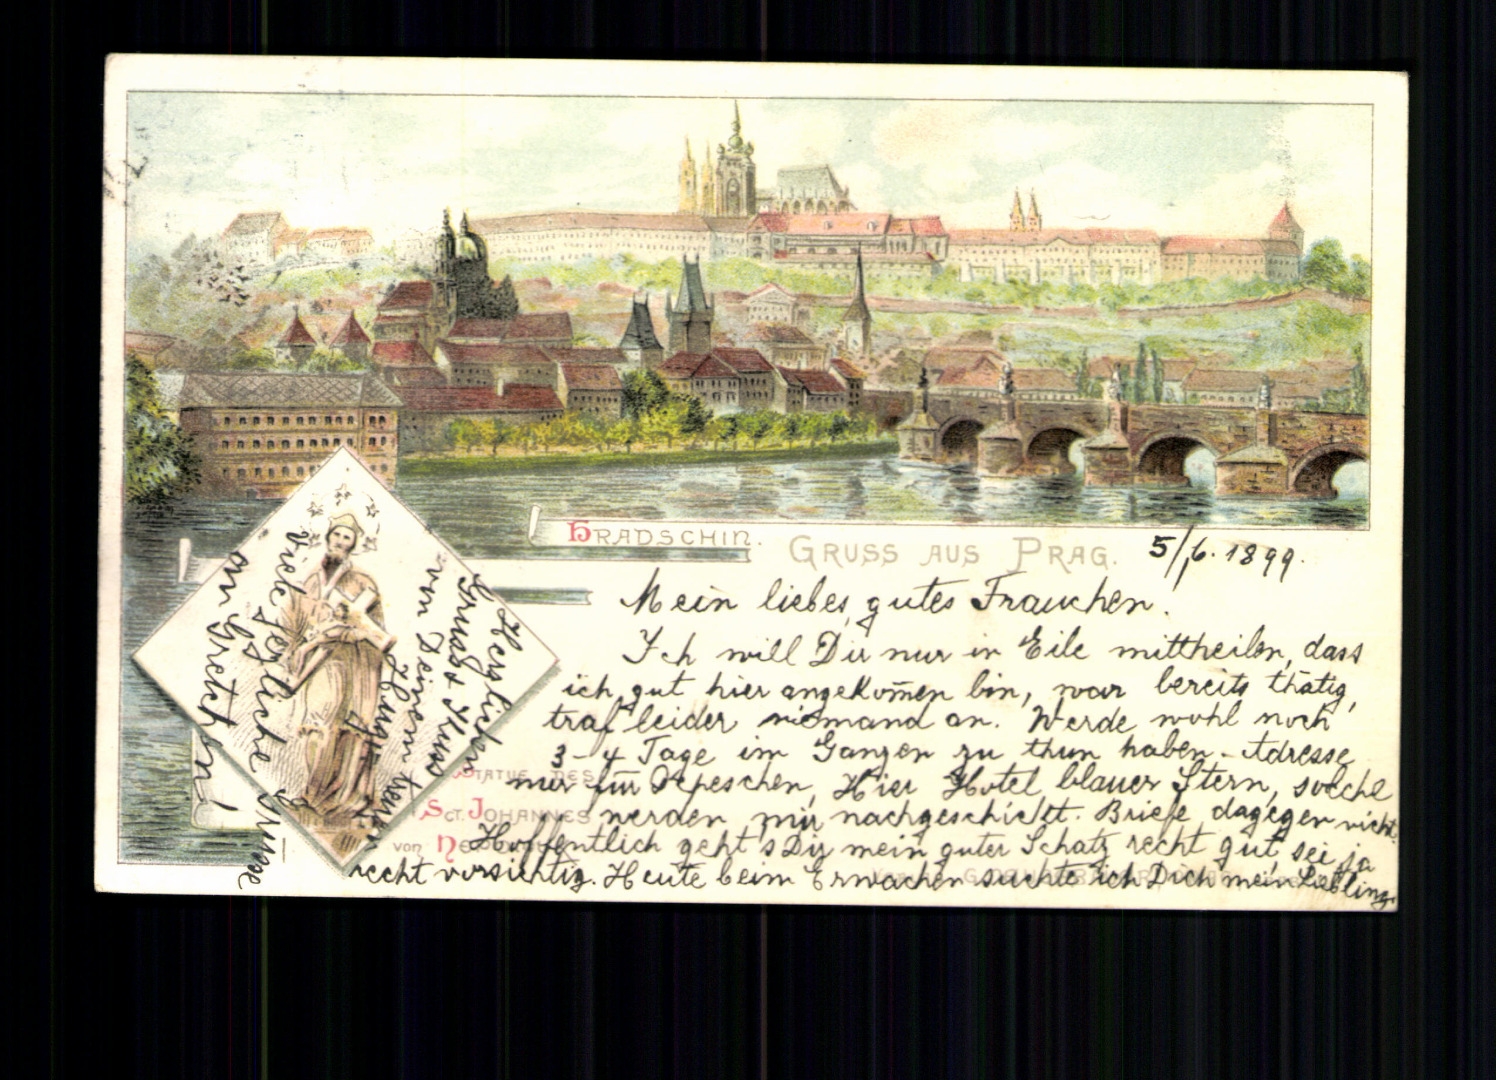 HRADSCHIN.
GRUSS AUS PRAG.
5/6. 1899.
Mein liebes, gutes Frauchen.
Ich will Dir nur in Eile mittheilen, dass
ich gut hier angekom̄en bin, war bereits thätig,
traf leider niemand an. Werde wohl noch
3-4 Tage im Ganzen zu thun haben. Adresse
nur für Depeschen, Hier Hotel blauer Stern, solche
werden mir nachgeschickt. Briefe dagegen nicht.
Hoffentlich geht's Dir mein guter Schatz recht gut, sei ja
recht vorsichtig. Heute beim Erwachen suchte ich Dich mein Liebling.
STATUE DES
SCT. JOHANNES
VON
Herzlichen
Gruss & Kuss
von Deinem treuen
Viele herzliche Grüsse
an Gretchen!